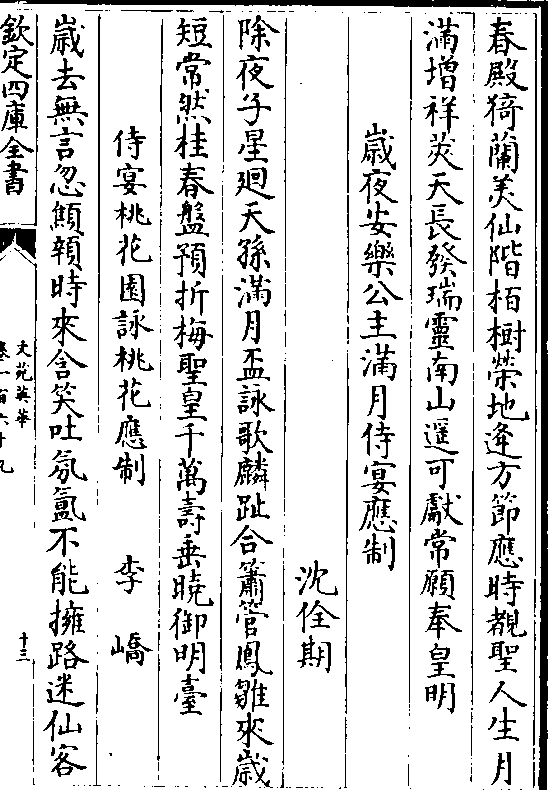 春殿猗蘭美仙階栢樹榮地逢方節應時覩聖人生月
滿增祥莢天長發瑞靈南山遥可獻常願奉皇明
歲夜安樂公主滿月侍宴應制
沈佺期
除夜子星廻天孫滿月盃詠歌麟趾合簫管鳳雛來歲
短常然桂春盤預折梅聖皇千萬壽垂曉御明臺
侍宴桃花園詠桃花應制 李嶠
歲去無言忽顦顇時來含笑吐氛氲不能擁路迷仙客
欽定四庫全書
文苑英華
卷一百六十九
十三